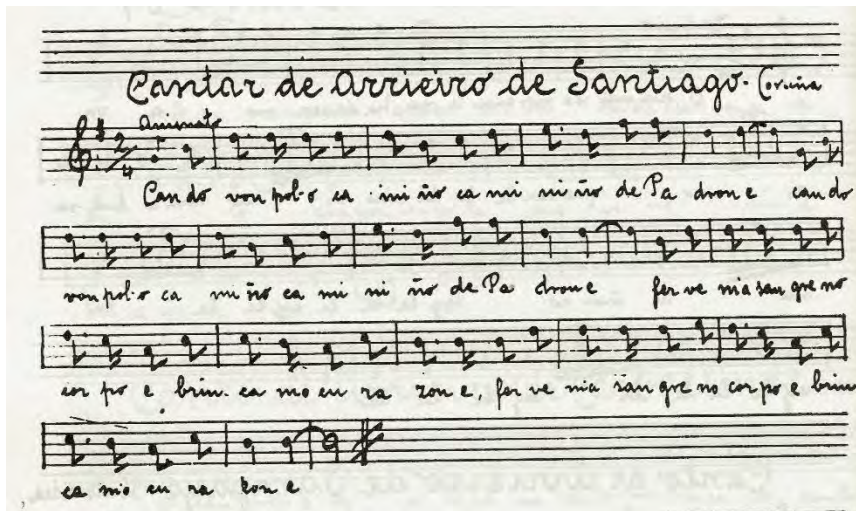 Cantar de Arrieiro de Santiago. Coruña
Animato
2/4
Cando vou pol-o ca mi ño ca mi ni ño de Pa drone cando
vou pol-o ca mi ño ca mi ni ño de Pa drone fer ve nia san gre no
cor po e brin. ca mo cu ra zon e, fer ve nia san gre no cor po e brin
ca mo cu ra zon e